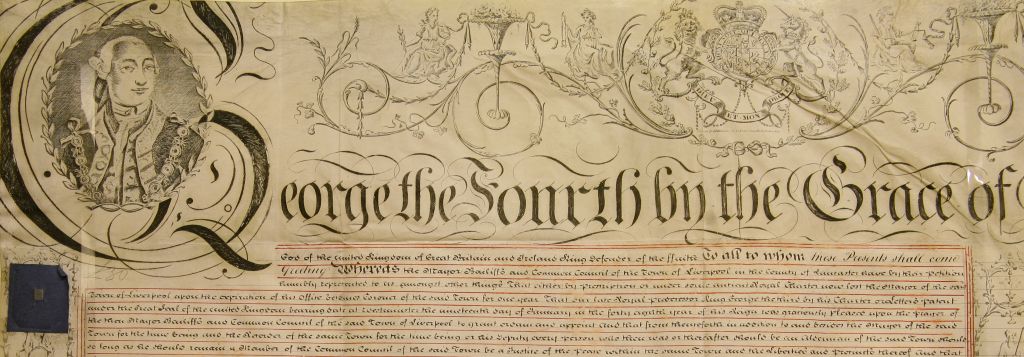 ET MON
George the Fourth by the Grace of
God of the united Kingdom of Great Britain and Ireland King Defender of the Faith To all to whom these Presents shall come
Greeting Whereas the Mayor Bailiffs and Common Council of the Town of Liverpool in the County of Lancaster have by their Petition
humbly represented to us amongst other things That either by prescription or under some antient Royal Charter now lost the Mayor of the said
Town of Liverpool upon the expiration of his Office becomes Coroner of the said Town for one year That our late Royal predecessor King George the third by his Charter or Letters patent
under the Great Seal of the united Kingdom bearing date at Westminster the nineteenth day of January in the forty eighth year of his Reign was graciously pleased upon the prayer of
the then Mayor Bailiffs and Common Council of the said Town of Liverpool to grant ordain and appoint that from thenceforth in addition to and besides the Mayor of the said
Town for the time being and the Recorder of the same Town for the time being or his Deputy every person who then was or thereafter should be an Alderman of the said Town should
so long as he should remain a Member of the Common Council of the said Town be a Justice of the Peace within the same Town and the Liberties and Precincts thereof and that